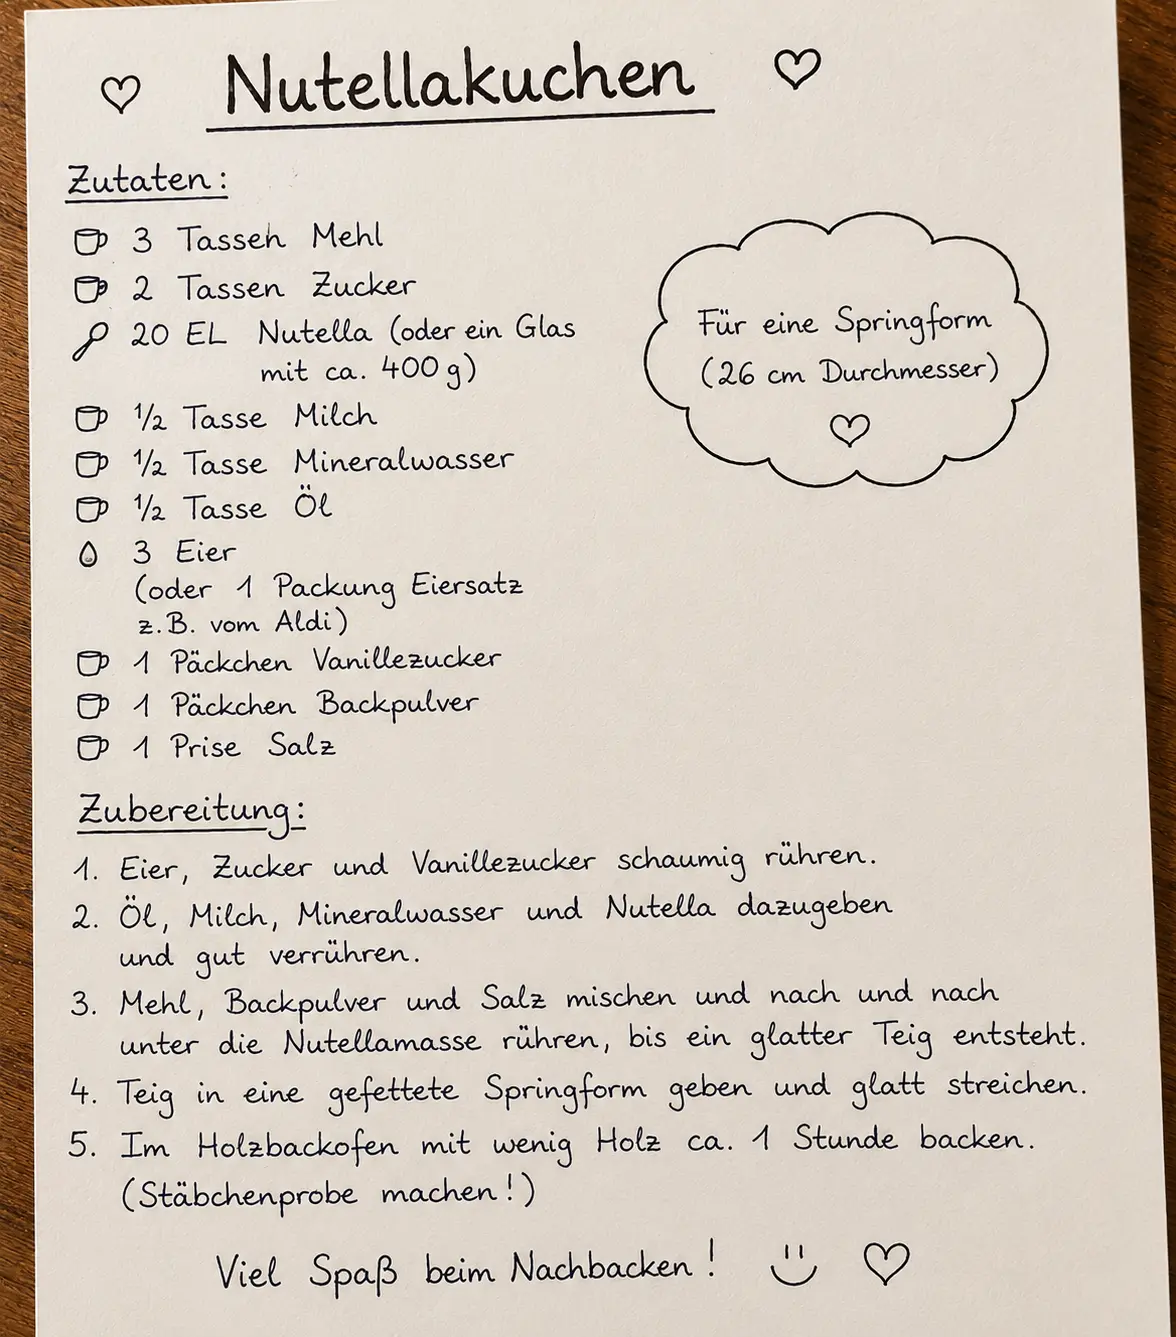 Nutellakuchen
Zutaten:
3 Tassen Mehl
2 Tassen Zucker
20 EL Nutella (oder ein Glas
mit ca. 400 g)
1/2 Tasse Milch
1/2 Tasse Mineralwasser
1/2 Tasse Öl
3 Eier
(oder 1 Packung Eiersatz
z.B. vom Aldi)
1 Päckchen Vanillezucker
1 Päckchen Backpulver
1 Prise Salz
Für eine Springform
(26 cm Durchmesser)
Zubereitung:
1. Eier, Zucker und Vanillezucker schaumig rühren.
2. Öl, Milch, Mineralwasser und Nutella dazugeben
und gut verrühren.
3. Mehl, Backpulver und Salz mischen und nach und nach
unter die Nutellamasse rühren, bis ein glatter Teig entsteht.
4. Teig in eine gefettete Springform geben und glatt streichen.
5. Im Holzbackofen mit wenig Holz ca. 1 Stunde backen.
(Stäbchenprobe machen!)
Viel Spaß beim Nachbacken!